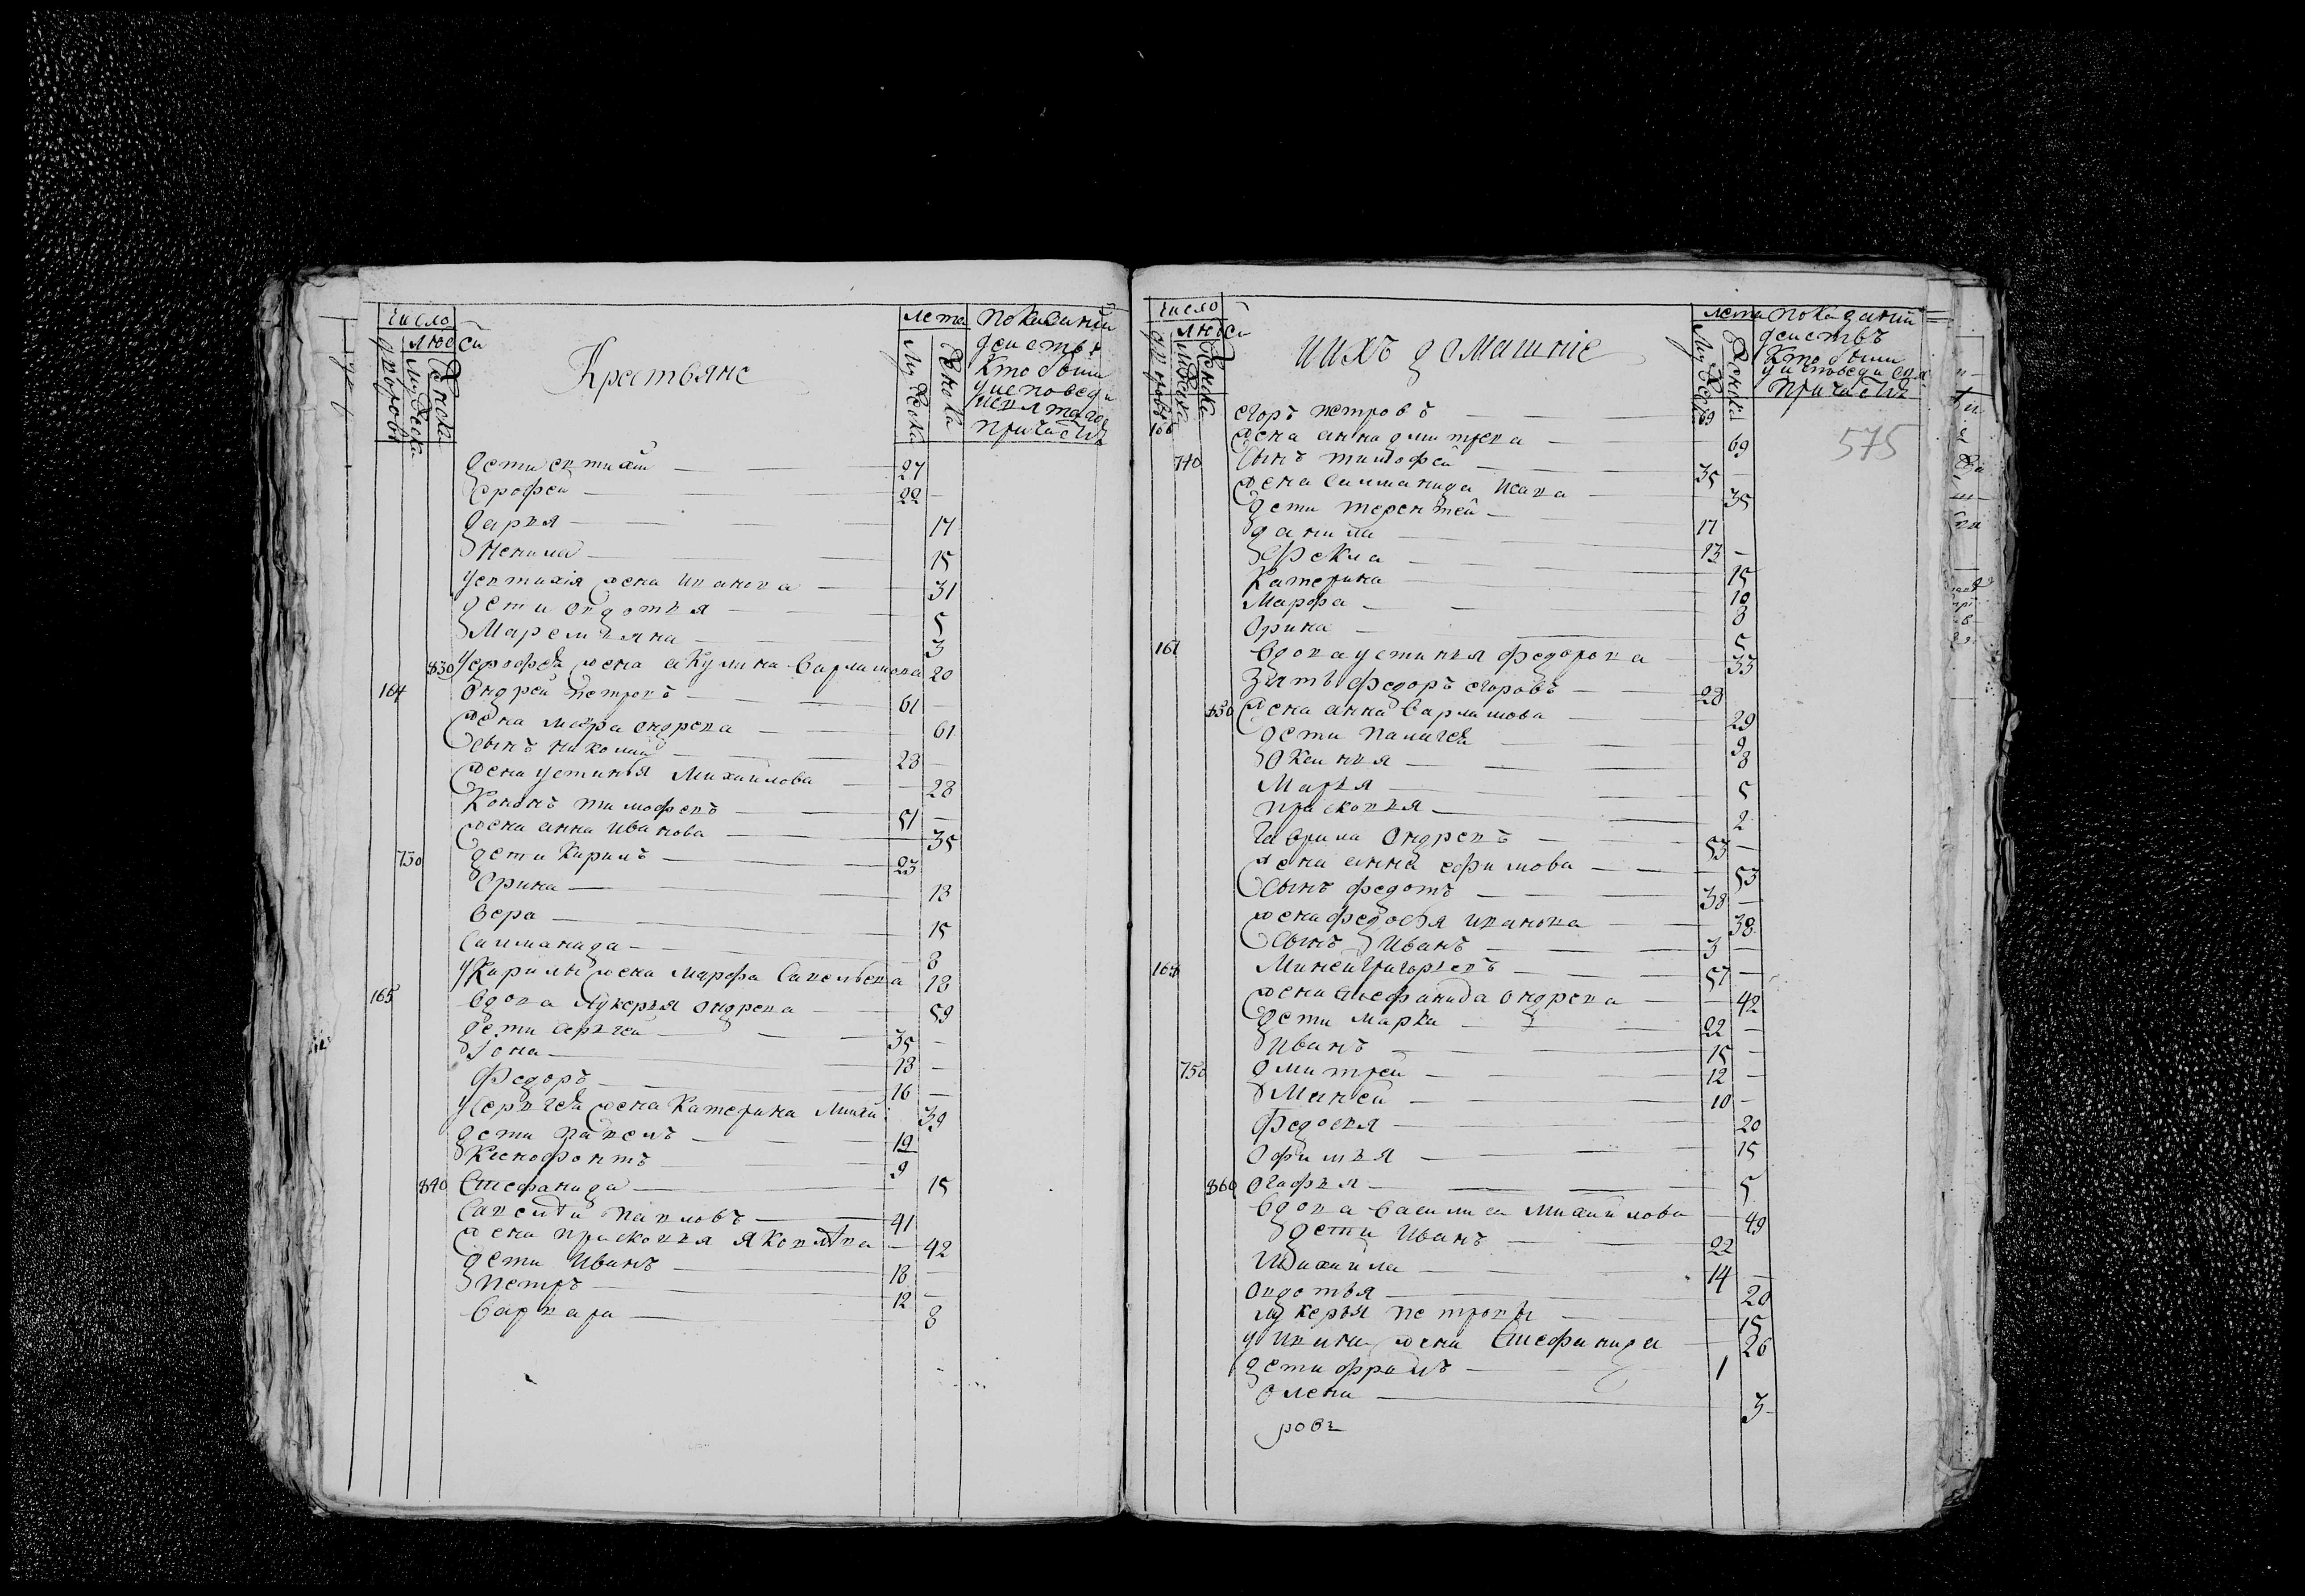 число
людей
дворовъ
Мужеска
Женска
Крестьяне
лета
Му жеска
женска
показании
деиствъ
Кто былъ
у исповеди
причастия
дети евтихiй — 27
Ерофей — 22 —
дарья — 17
Ненила — 15
у евтихiя жена иванова — 31
дети овдотья — 5
Маремьяна — 3
830 у ерофея жена акулина варламова 20
164 Ондрей петровъ — 61 —
жена мавра ондрева — 61
сынъ николай — 28 —
жена устинья Михаилова — 28
Кононъ тимофевъ — 51 —
жена анна иванова — 35
730 дети Кирилъ — 23
Орина — 18
вера — 15
Салманида — 8
у Кирилы жена марфа Савельева 18
165 вдова лукерья ондрева — 59
дети сергей — 35 —
Iона — 18 —
Федоръ — 16 —
у Сергея жена Катерина Михаи 39
дети павелъ — 19
Ксенофонтъ — 9
840 Стефанида — 15
Савелей павловъ — 41
жена прасковья Яковлева — 42
дети Иванъ — 18
петръ — 12 —
варвара — 8
число
людей
дворовъ
Мужеска
Женска
и ихъ домашнiе
лета
Мужеска
Женска
показании
деиствъ
Кто были
у исповеди с я
причастия
575
166 егоръ петровъ — 69
жена анна дмитрева — 69
740 сынъ тимофей — 35
жена Салманида Исаева — 35
дети терентей — 17
данила — 13 —
Фекла — 15
Катерина — 10
Марфа — 8
Орина — 5
167 вдова устинья федорова — 33
Зять федоръ егоровъ — 28
850 жена анна варламова — 29
дети палагея — 9
Оксинья — 8
Марья — 5
прасковья — 2
гаврила ондревъ — 53 —
жена анна ефимова — 53
Сынъ федотъ — 38 —
жена федосья иванова — 38
Сынъ Иванъ — 3 —
168 Миней григорьевъ — 57 —
жена стефанида ондрева — 42
дети марка — 22 —
Иванъ — 15 —
750 дмитрей — 12 —
Миней — 10 —
Федосья — 20
Офимья — 15
860 огафья — 5
вдова василиса михаилова — 49
дети Иванъ — 22
Михаила — 14 —
овдотья — 20
лукерья петровы — 15
у ивана жена стефанида — 26
дети фролъ — 1
олена — 3
ровъ